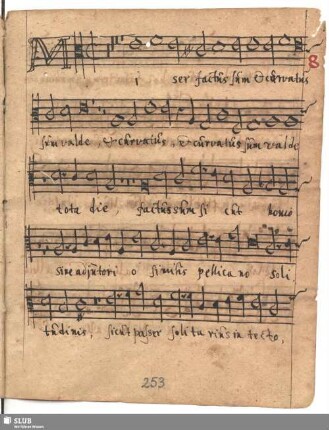 8
Miser factus sum & curvatus
sum valde, & curvatus, & curvatus sum valde
tota die, factus sum si cut homo
sine adjutori o similis pellica no soli
tudinis, sicut passer solita rius in tecto,
253
SLUB
Wir führen Wissen.